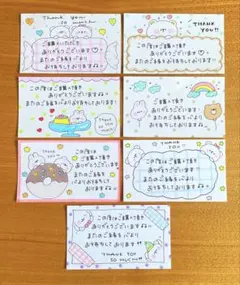 THANK YOU
SO MUCH
ご購入いただき
ありがとうございます♡
またのご縁を心より
お待ちしております!
THANK
YOU!!
この度はご購入頂き
ありがとうございます
またのご縁を心より
お待ちしております♪
この度はご購入頂き
ありがとうございます
またのご縁を心より
お待ちしております
この度はご購入頂き
ありがとうございます
またのご縁を心より
お待ちしております
この度はご購入頂き
ありがとうございます
またのご縁を心より
お待ちしております
THANK
YOU
THANK YOU
この度はご購入頂き
ありがとうございます
またのご縁を心より
お待ちしております
この度はご購入頂き
ありがとうございます
またのご縁を心より
お待ちしております
THANK YOU
SO MUCH